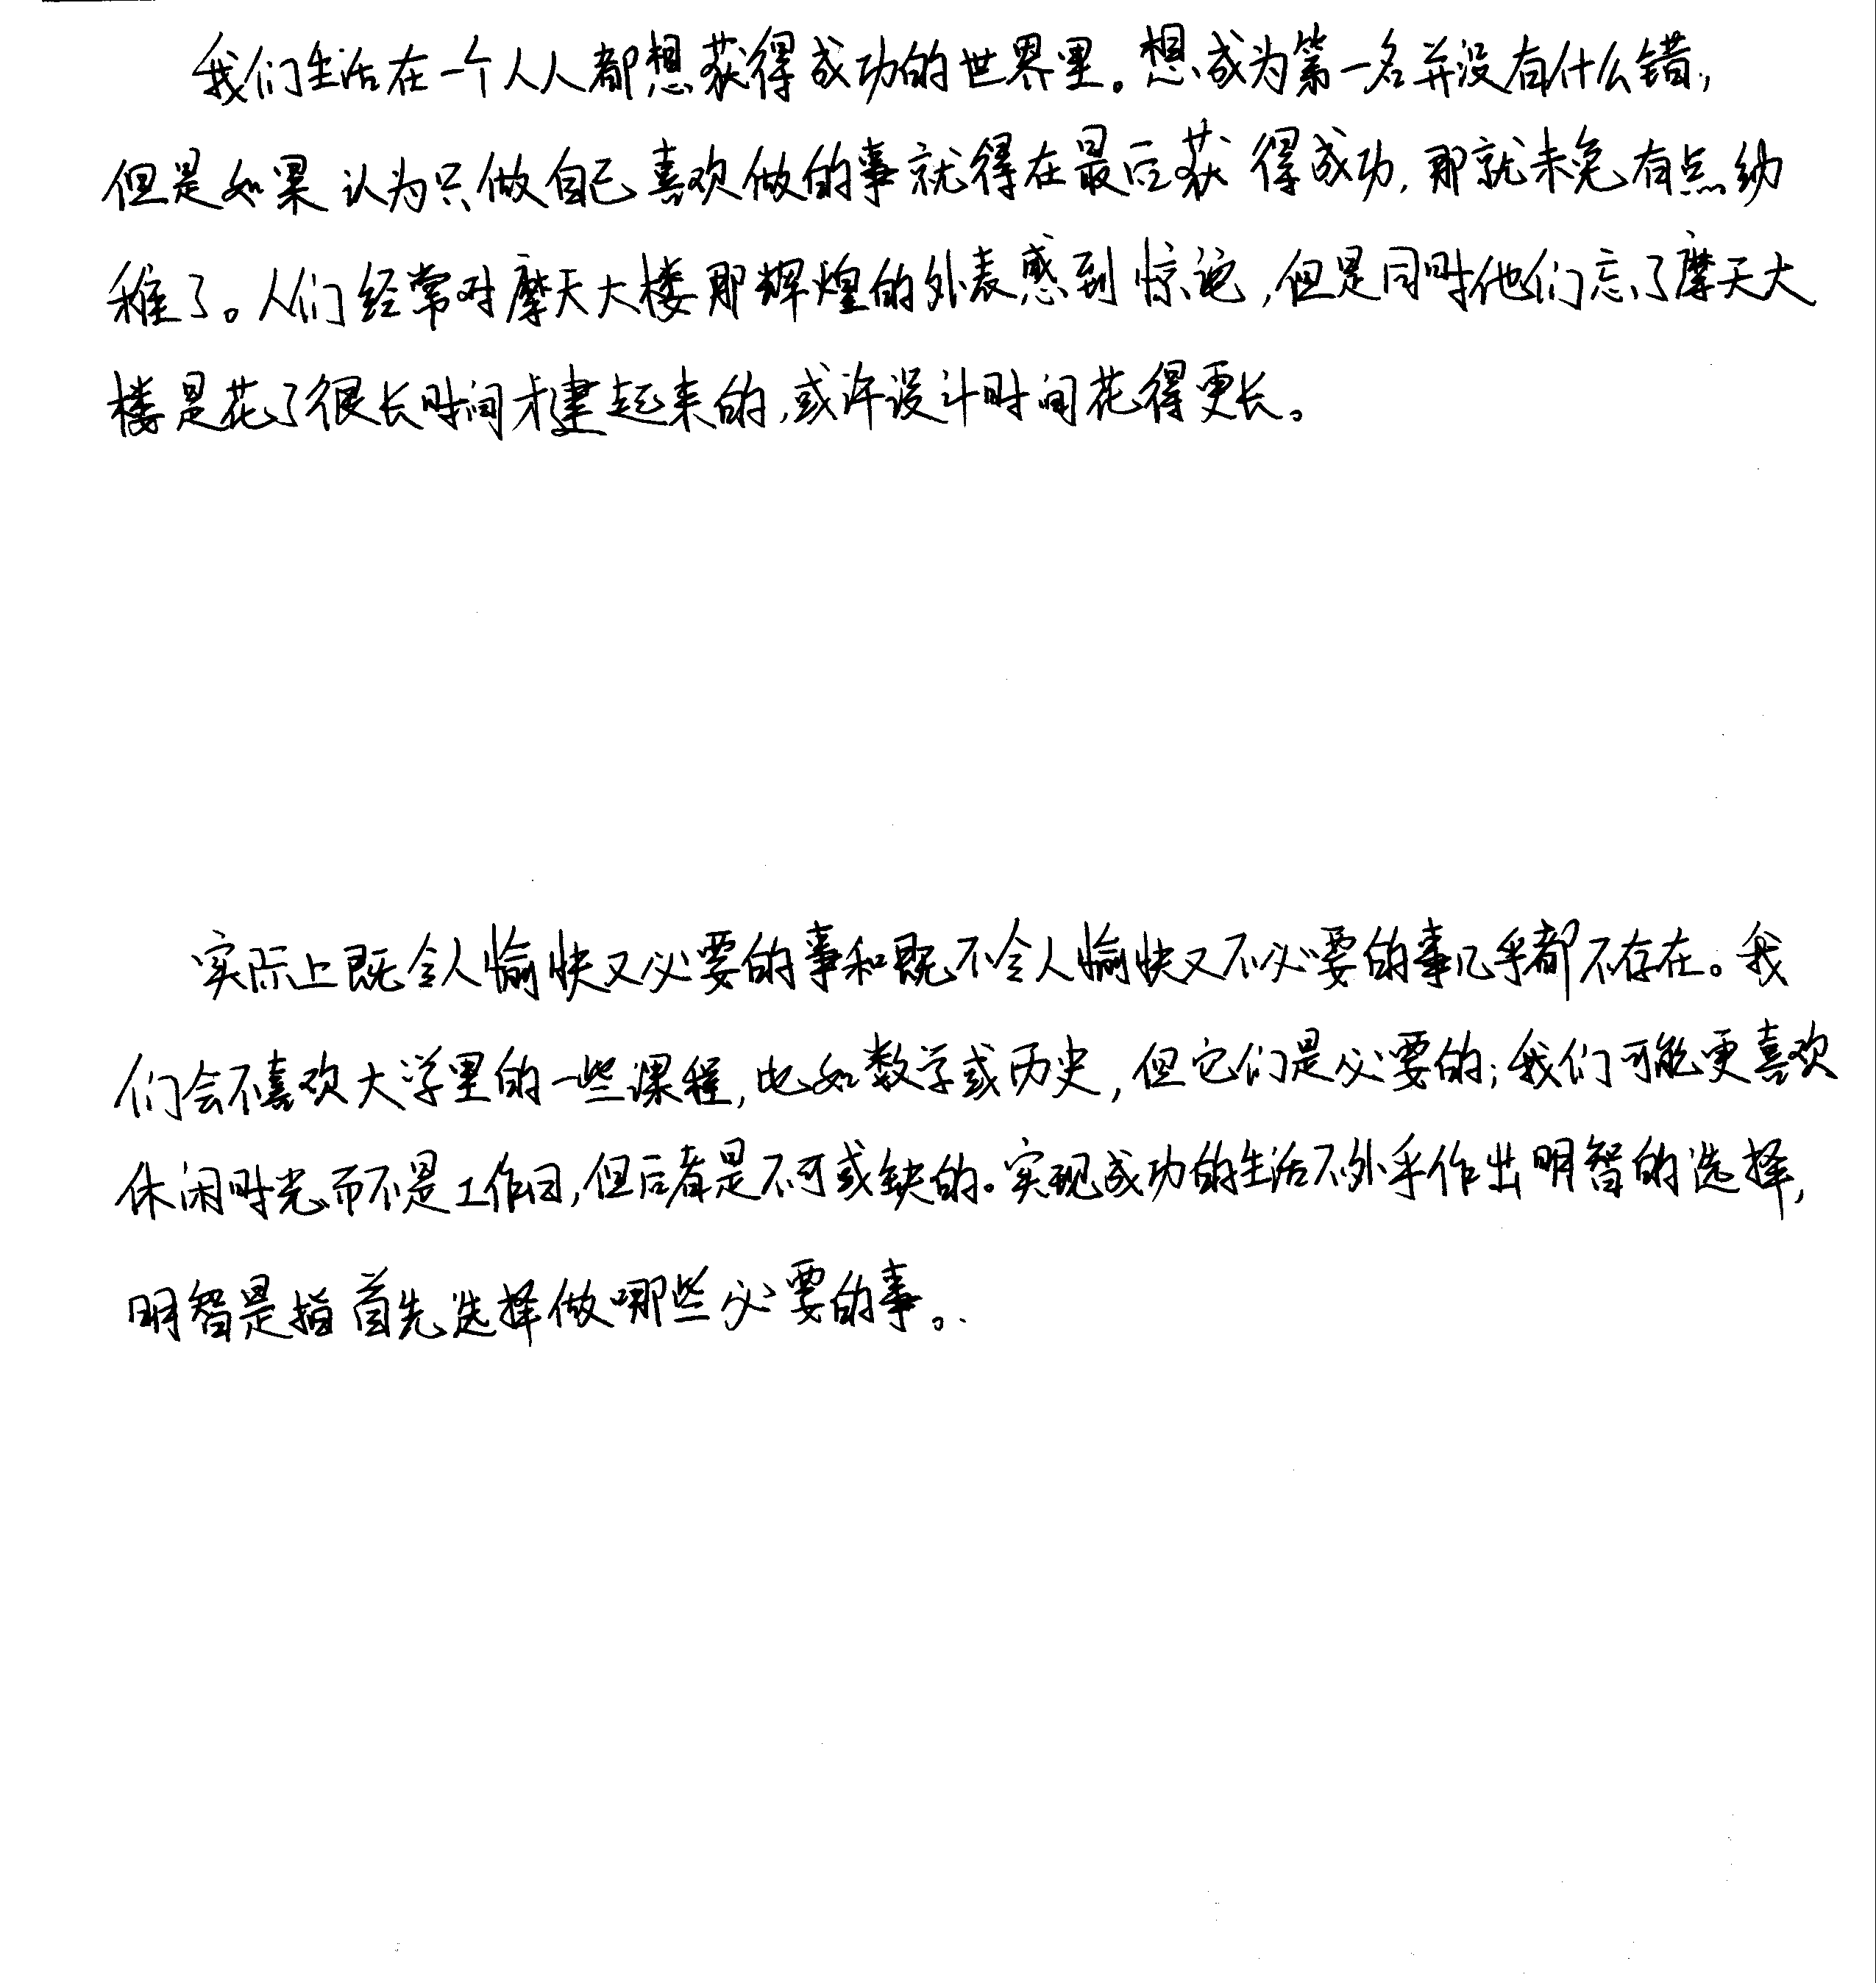 我们生活在一个人人都想获得成功的世界里。想成为第一名并没有什么错,
但是如果认为只做自己喜欢做的事就得在最后获得成功,那就未免有点幼
稚了。人们经常对摩天大楼那辉煌的外表感到惊诧,但是同时他们忘了摩天大
楼是花了很长时间才建起来的,或许设计时间花得更长。
实际上既令人愉快又必要的事和既不令人愉快又不必要的事几乎都不存在。我
们会不喜欢大学里的一些课程,比如数学或历史,但它们是必要的;我们可能更喜欢
休闲时光而不是工作日,但后者是不可或缺的。实现成功的生活不外乎作出明智的选择,
明智是指首先选择做哪些必要的事。